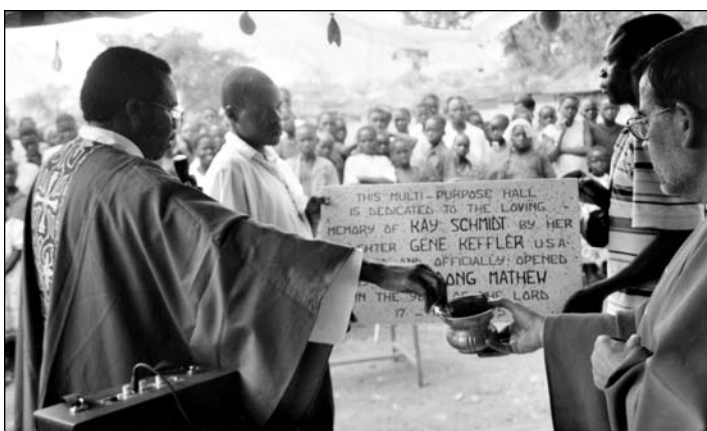 THIS MULTI-PURPOSE HALL
IS DEDICATED TO THE LOVING
MEMORY OF KAY SCHMIDT BY HER
GENE KEFFLER U.S.A.
AND OFFICIALLY OPENED
MATHEW
IN THE OF THE LORD
17 -